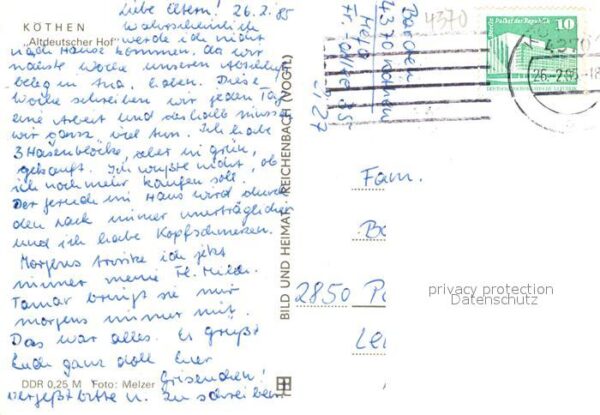 KÖTHEN
„Altdeutscher Hof"
Liebe Eltern! 26.2.85
Wahrscheinlich
werde ich nicht
nach Hause kommen, da wir
nächste Woche unseren Abschluß-
beleg in haben. Diese
Woche schreiben wir jeden Tag
eine Arbeit und deshalb müssen
wir ganz viel tun. Ich habe
3 Hasenblöcke, aber in grün,
gekauft. Ich wußte nicht, ob
ich noch mehr kaufen soll.
Der Geruch im Haus wird durch
den Lack immer unerträglicher
und ich habe Kopfschmerzen.
Morgens trinke ich jetzt
immer meine Fl. Milch.
Tamar bringt sie mir
morgens immer mit.
Das war alles. Es grüßt
Euch ganz doll Euer
Grisenchen!
Vergeßt bitte n. zu schreiben!
DDR 0,25 M Foto: Melzer
BILD UND HEIMAT, REICHENBACH (VOGTL)
4370
4370 Köthen
27
Palast der Republik
10
26.-2.85-18
Fam.
Ba
2850 Pa
privacy protection
Datenschutz